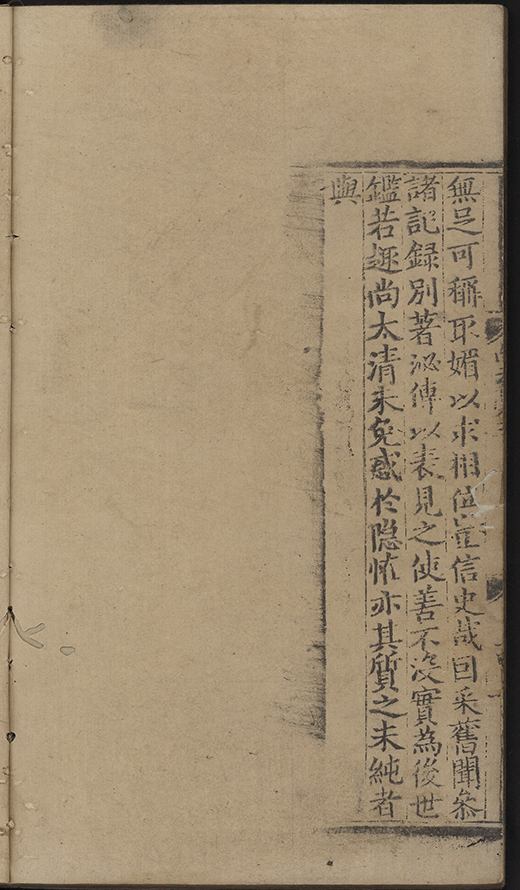 無足可稱取媚以求相値豈信史哉因采舊聞叅
諸記録別著泌傳以表見之使善不没實為後世
鑑若趣尚太清未免惑於隐怪亦其質之未純者
與